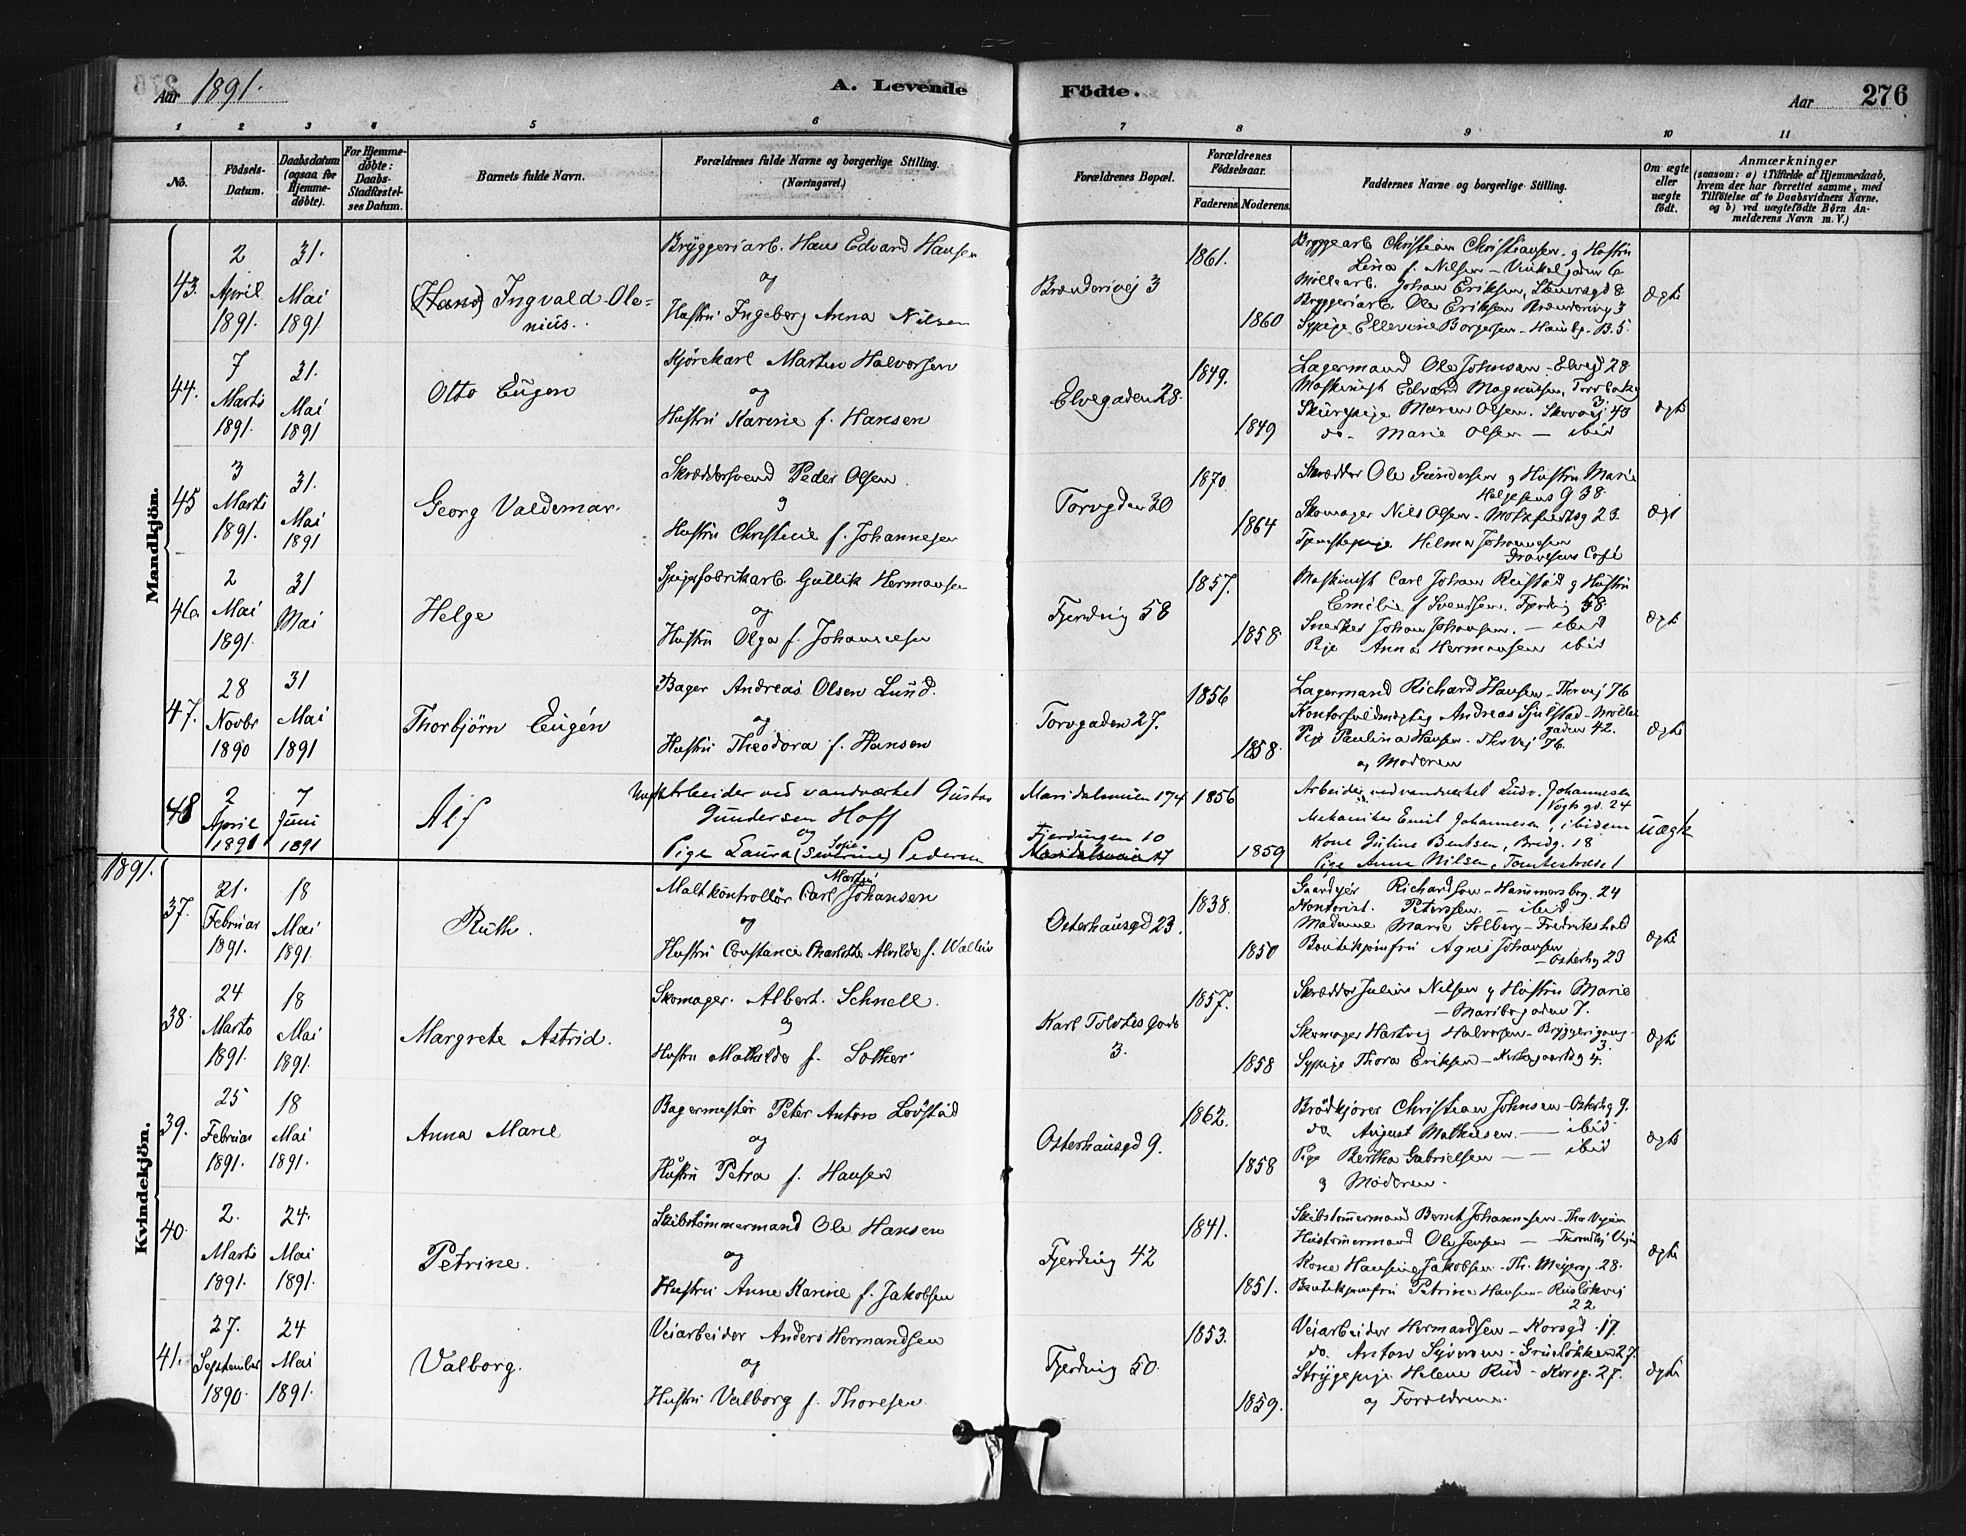 Aar 1891.
A. Levende Födte.
Aar 276
1 2 3 4 5 6 7 8 9 10 11
No.
Födsels-Datum.
Daabsdatum (ogsaa for Hjemme-döbte).
For Hjemme-döbte: Daabs-Stadfæstel-ses Datum.
Barnets fulde Navn.
Forældrenes fulde Navne og borgerlige Stilling. (Næringsvei.)
Forældrenes Bopæl.
Forældrenes Födselsaar.
Faderens. Moderens.
Faddernes Navne og borgerlige Stilling.
Om ægte eller uægte födt.
Anmærkninger
(saasom: a) i Tilfælde af Hjemmedaab,
hvem der har forrettet samme, med
Tilföielse af to Daabsvidners Navne.
og b) ved uægtefödte Börn An-
melderens Navn m. V.)
Mandkjön.
43. 2 April 1891. 31. Mai 1891
(Hans) Ingvald Ole=
nius.
Bryggeriarb. Hans Edvard Hansen
og
Hustru Ingeborg Anna Nilsen
Brænderivej 3
1861.
1860
Bryggearb Christian Christiansen g Hustru
Lina f. Nilsen - Vinkelgaden 6
Möllearb. Johan Eriksen, Stenersgd 8
Bryggeriarb. Ole Eriksen Brænderivej 3
Sypige Ellevine Borgersen - Hausg. B. 5.
Ægte
44. 7 Marts 1891. 31. Mai 1891
Otto Eugen
Kjörekarl Martin Halvorsen
og
Hustru Karine f. Hansen
Elvegaden 28.
1849.
1849
Lagermand Ole Johnsen - Elvegd 28
Maskinist Edvard Magnussen, Tordbakg
3.
Skurepige Maren Olsen. Skovvej 40
do. Marie Olsen - ibid
Ægte
45 3 Marts 1891. 31. Mai 1891
Georg Valdemar.
Skræddersvend Peder Olsen
g
Hustru Christine f. Johannesen
Torvgden 30
1870.
1864
Skrædder Ole Gundersen g Hustru Marie
Helgesens G 38.
Skomager Nils Olsen - Motzfeldtsg 23.
Tjenestepige Helma Johannesen
Gravesens Café
Ægt
46. 2 Mai 1891. 31 Mai
Helge
Spigerfabrikarb. Gullik Hermansen
og
Hustru Olga f. Johannesen
Fjerding 58
1857.
1858.
Maskinist Carl Johan Reistad g Hustru
Emilie f Svendsen. Fjerding 58.
Snekker Johan Johansen. - ibid
Pige Anna Hermansen ibid
Ægte
47. 28 Novbr 1890 31 Mai 1891
Thorbjörn Eugén
Bager Andreas Olsen Lund.
og
Hustru Theodora f. Hansen
Torvgaden 27.
1856
1858.
Lagermand Richard Hansen - Thorvej 76
Kontorfuldmægtig Andreas Sjulstad - Mölle
gaden 42.
Pige Paulina Hansen. Thor Vej 76.
og Moderen
Ægte
48 2 April 1891 7 Juni 1891
Alf
Arbeider ved vandværket Gustav
Gundersen Hoff
og
Pige Laura (Severine) Sofie Pedersen
Maridalsveien 174
Fjerdingen 10
1856
1859
Arbeider ved vandværket Ludv. Johannesen
Vogts gd. 24
Mekaniker Emil Johannesen, ibidem
Kone Juline Bentsen, Bredg. 18
Pige Anne Nilsen, Tomtestræde 1
Uægte
1891.
Kvindekjön.
37. 21. Februar 1891. 18 Mai 1891.
Ruth.
Maltkontrollör Carl Martin Johansen
og
Hustru Constance Charlotte Alvilde f. Wallin
Osterhausgd 23.
1838.
1850
Gaardeier Richardson - Hammersborg. 24
Kontorist. Peterssen. - ibid
Madame Marie Solberg - Fredrikshald
Boutikjomfru Agnes Johansen
- Osterhsg 23
Ægte
38. 24 Marts 1891. 18 Mai 1891.
Margrete Astrid.
Skomager. Albert. Schnell.
g
Hustru Mathilde f. Sother
Karl Toldtes Gade
3.
1857.
1858
Skrædder Julius Nilsen g Hustru Marie
- Maribogaden 7.
Skomager Hartvig Halvorsen - Bryggerigang
3.
Sypige Thora Eriksen - gaardsg 4.
Ægte
39. 25 Februar 1891. 18 Mai 1891.
Anna Marie
Bagermester Peter Anton Lövstad
og
Hustru Petra f. Hansen
Osterhausgd 9.
1862.
1858
Brödkjörer Christian Johnsen - Osterhg 9.
do August Mathisen. - ibid
Pige Bertha Gabrielsen - - ibid
g Moderen.
Ægte
40. 2. Marts 1891. 24. Mai 1891.
Petrine.
Skibstömmermand Ole Hansen
og
Hustru Anne Karine f. Jakobsen
Fjerding 42
1841.
1851.
Skibstömermand Bernt Johannesen - Thor Vejen
Hustömmermand Ole Jensen -
Kone Hansine Jakobsen - Th. Meyersg. 28.
Boutikjomfru Petrine Hansen - Ruslökvej
22
Ægte
41. 27. September 1890. 24 Mai 1891.
Valborg.
Veiarbeider Anders Hermandsen
og
Hustru Valborg f. Thoresen
Fjerding 50.
1853.
1859.
Veiarbeider Hermandsen - Korsgd. 17.
do. Anton Syversen - Grünlökken 27.
Strygepige Helene Rud - Korsg. 27.
og Forældrene.
Ægte